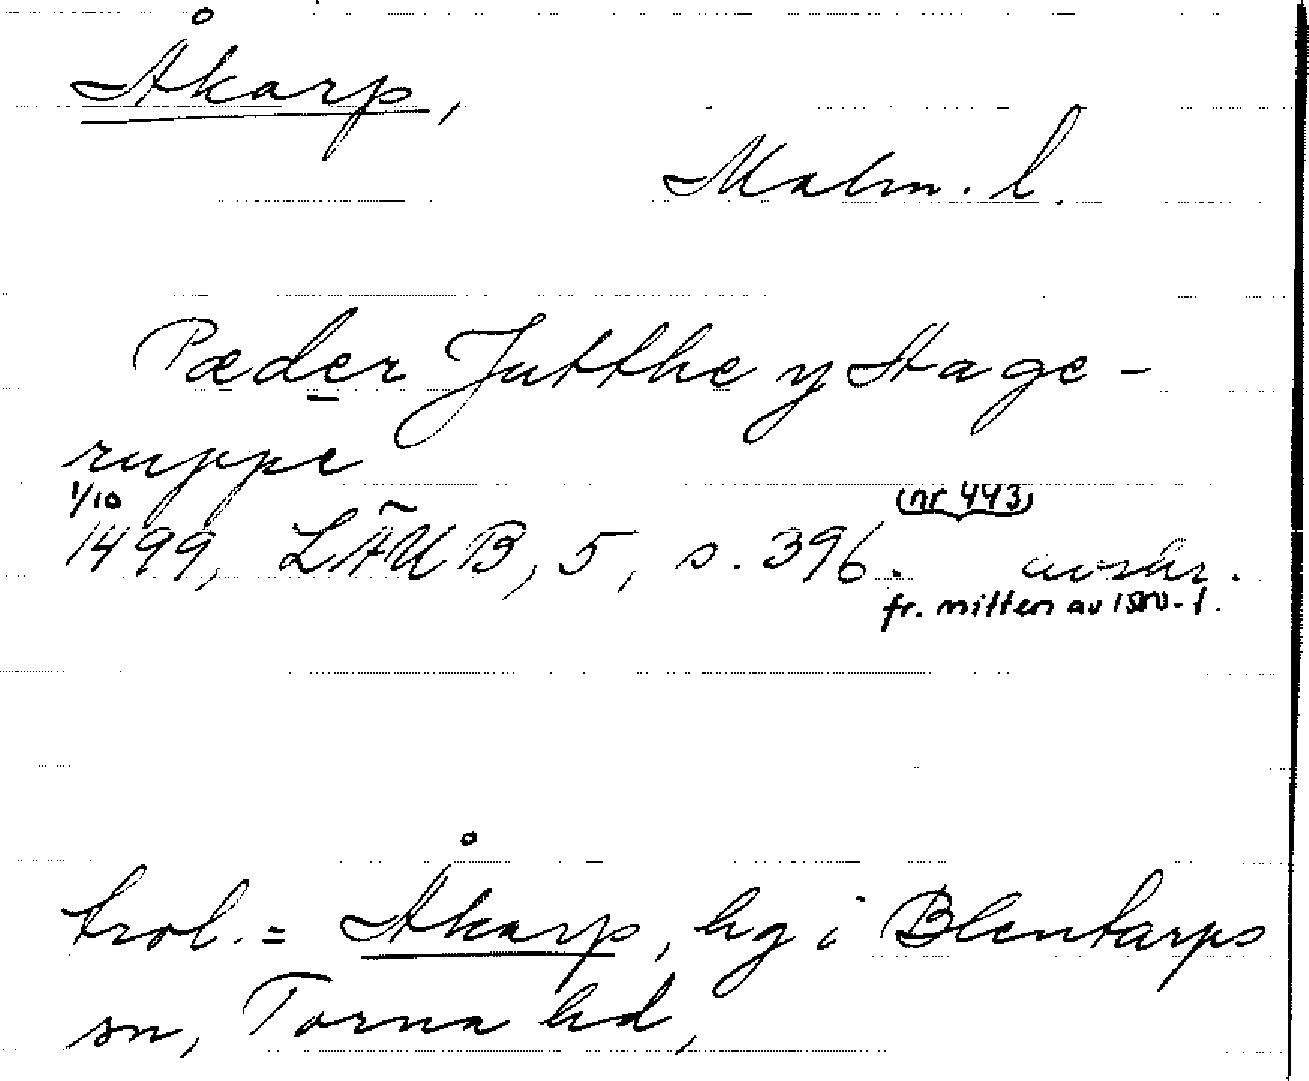 Åkarp,
Malm. l.
Pæder Jutthe y Aage-
ruppe
1/10 (nr 443)
1499, LÄUB, 5, s. 396. avskr.
fr. mitten av 1500-t.
trol. = Åkarp, by i Blentarps
sn, Torna hd,